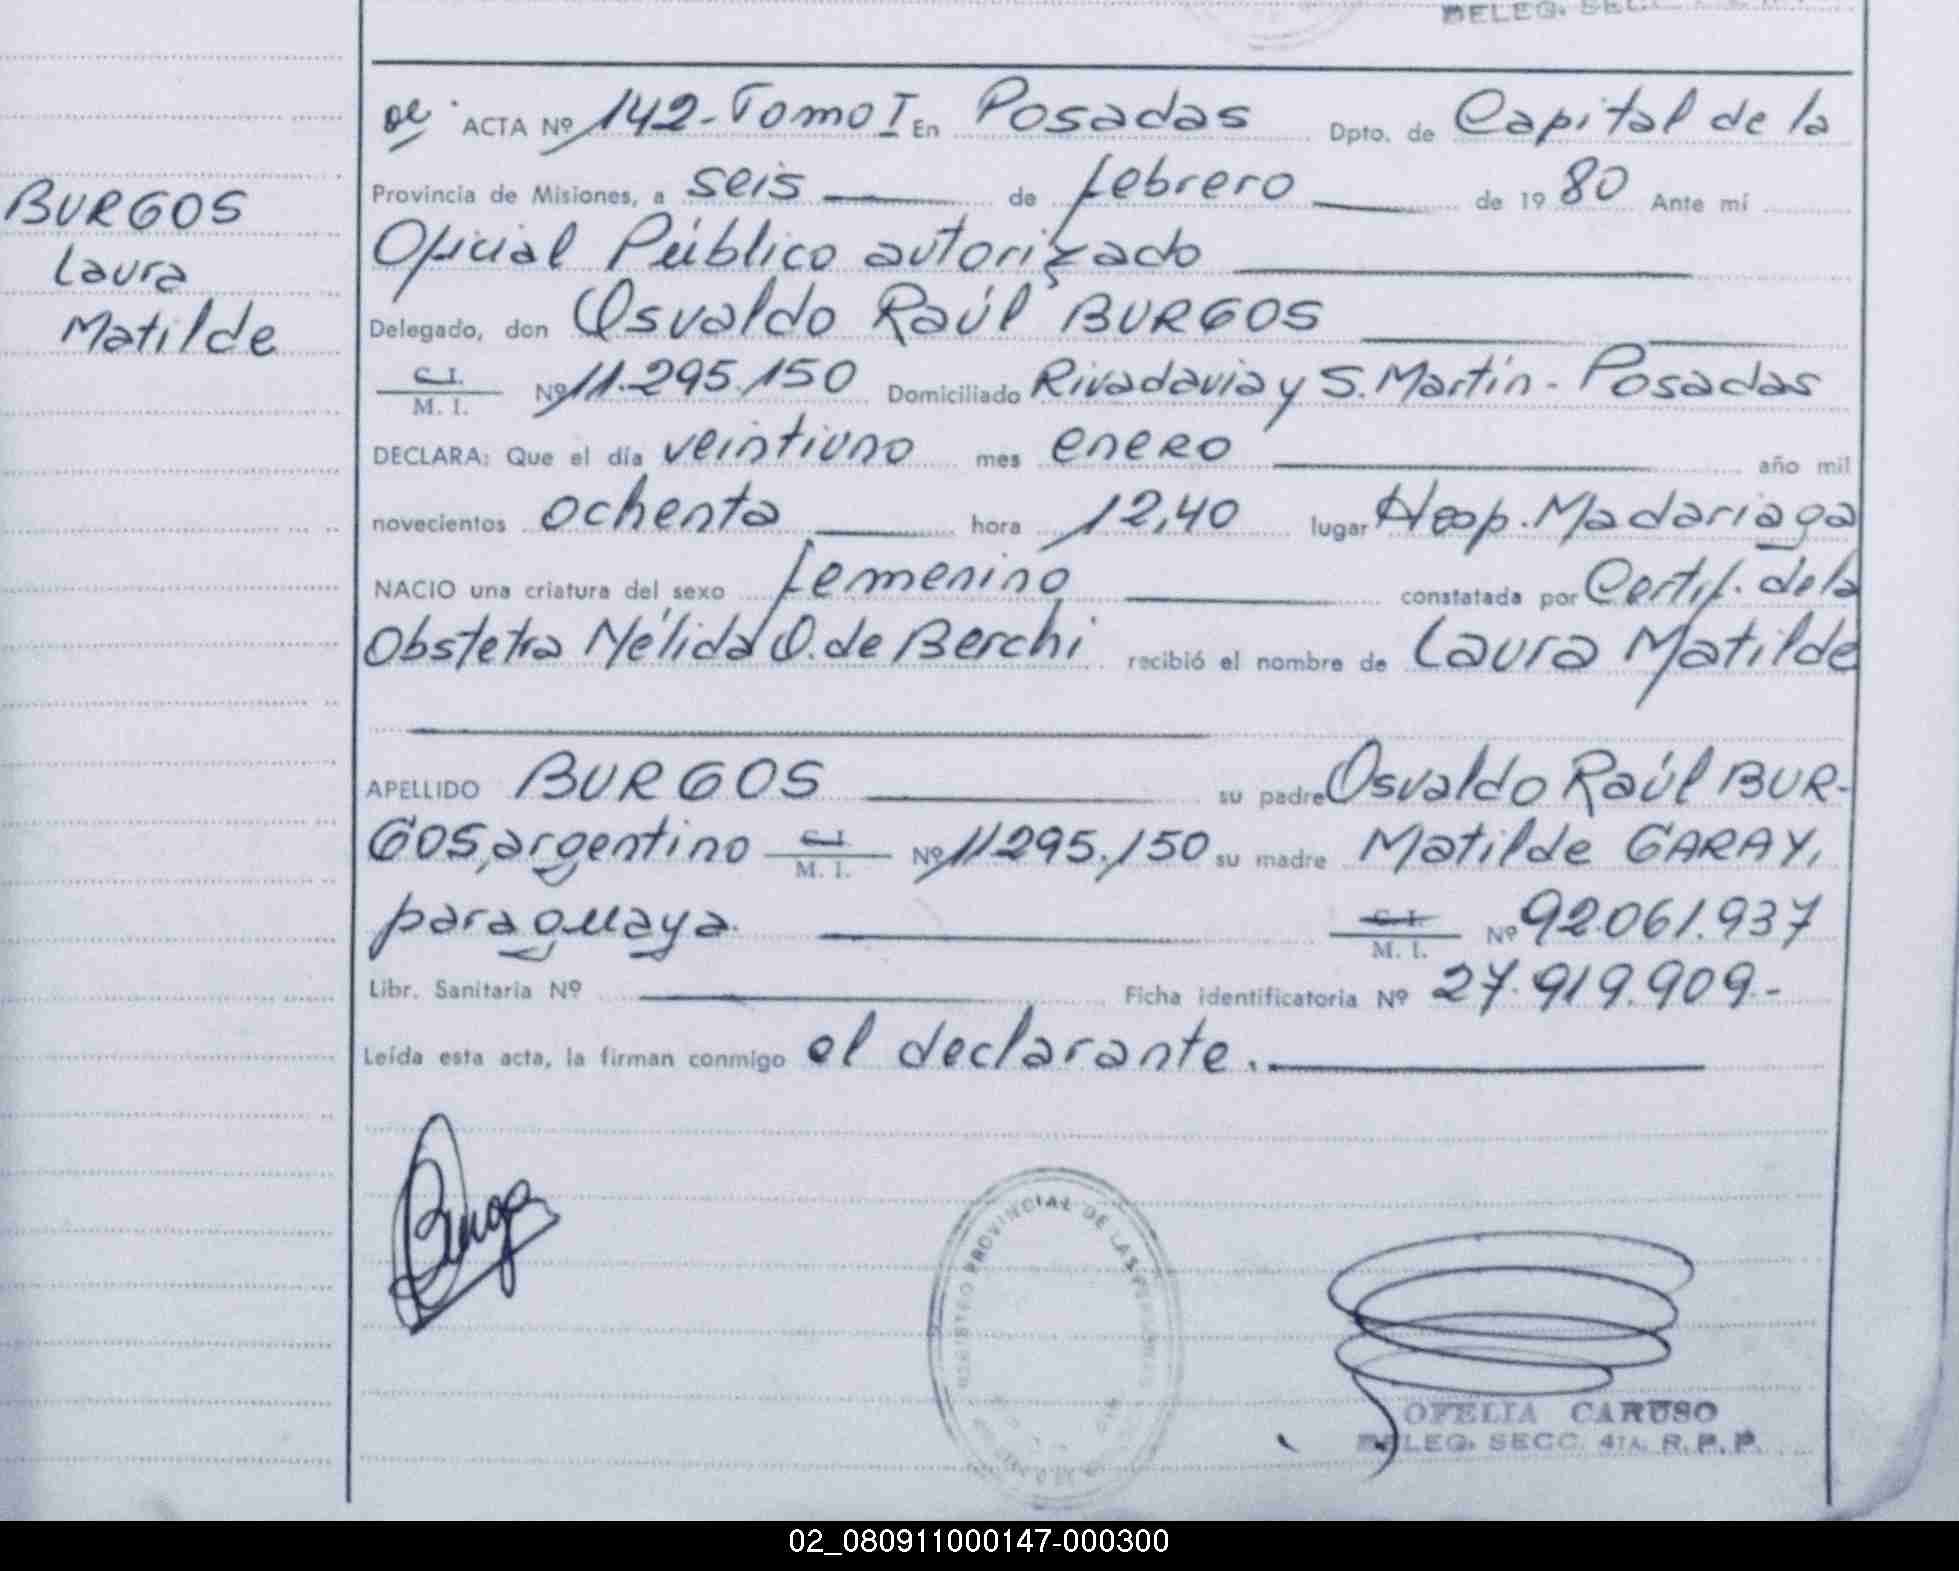 DELEG. SEC
ACTA Nº 142-Tomo I En Posadas Dpto. de Capital de la
Provincia de Misiones, a seis de febrero de 1980 Ante mí
Oficial Público autorizado
Delegado, don Osvaldo Raúl BURGOS
C. I.
M. I. Nº 11.295.150 Domiciliado Rivadavia y S. Martín - Posadas
DECLARA: Que el día veintiuno mes enero año mil
novecientos ochenta hora 12,40 lugar Hosp. Madariaga
NACIO una criatura del sexo femenino constatada por Certif. de la
Obstetra Nélida O. de Berchi recibió el nombre de Laura Matilde
APELLIDO BURGOS su padre Osvaldo Raúl BUR-
GOS, argentino C. I. M. I. Nº 11295.150 su madre Matilde GARAY,
paraguaya. C. I. M. I. Nº 92.061.937
Libr. Sanitaria Nº Ficha identificatoria Nº 27.919.909.-
Leída esta acta, la firman conmigo el declarante.
BURGOS
Laura
Matilde
Burgos
REGISTRO PROVINCIAL DE LAS PERSONAS
OFELIA CARUSO
DELEG. SECC. 4TA. R. P. P.
02_080911000147-000300